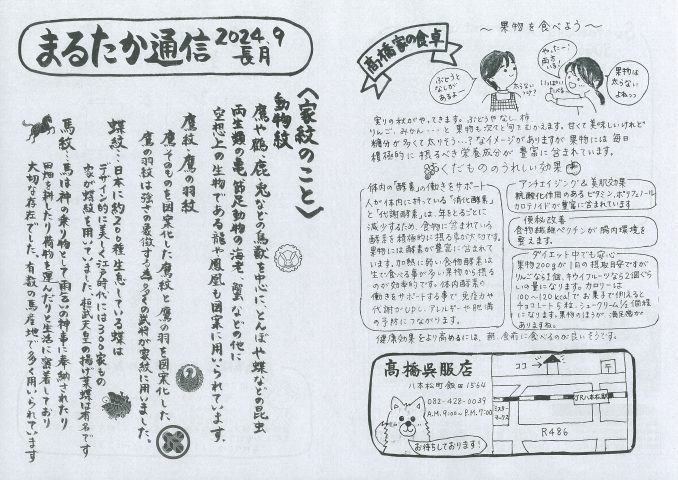 まるたか通信
2024.9
長月
〈家紋のこと〉
動物紋
鷹や鶴、鹿、兎などの鳥獣を中心に、とんぼや蝶などの昆虫
両生類の亀、節足動物の海老、蟹などの他に
空想上の生物である龍や鳳凰も図案に用いられています。
鷹紋・鷹の羽紋
鷹そのものを図案化した鷹紋と鷹の羽を図案化した
鷹の羽紋は強さの象徴する為、多くの武将が家紋に用いました。
蝶紋…日本に約200種生息している蝶は
デザイン的に美しく江戸時代には300家もの
家が蝶紋を用いていました。桓武天皇の揚げ葉蝶は有名です
馬紋…馬は神の乗り物として雨乞いの神事に奉納されたり
田畑を耕したり荷物を運んだりと生活に密着しており
大切な存在でした。有数の馬産地で多く用いられています
～果物を食べよう～
高橋家の食卓
ぶどうと
なしが
あるよー
太らない
いっぱい
たべる
果物は
太らない
よねっっ
実りの秋がやってきます。ぶどうやなし、柿
りんご、みかん・・・と果物も次々と旬をむかえます。甘くて美味しいけれど
糖分が多くて太りそう…?なイメージがありますが果物には毎日
積極的に摂るべき栄養成分が豊富に含まれています。
くだもののうれしい効果
体内の「酵素」の働きをサポート
人が体内に持っている「消化酵素」
と「代謝酵素」は、年をとるごとに
減少するため、食物に含まれている
酵素を積極的に摂る事が大切です。
果物には酵素が豊富に含まれて
います。加熱に弱い食物酵素は
生で食べる事が多い果物から摂る
のが効率的です。体内酵素の
働きをサポートする事で免疫力や
代謝がUPし、アレルギーや肥満
の予防につながります。
アンチエイジング&美肌効果
抗酸化作用のあるビタミン、ポリフェノール
カロテノイドが豊富に含まれています
便秘改善
食物繊維ペクチンが腸内環境を
整えます。
ダイエット中でも安心
果物200gが1日の摂取目安ですが
りんごなら1個、キウイフルーツなら2個ぐら
いの量になります。カロリーは
100～120kcalでお菓子で例えると
チョコレート5粒、シュークリーム1/2個程
になります。果物のほうが、満足感が
ありますね。
健康効果をより高めるには、朝、食前に食べるのが良いそうです。
高橋呉服店
八本松町飯田1564
082-428-0039
A.M.9:00～P.M.7:00
お待ちしております!
ココ
〒
JR八本松駅
R486